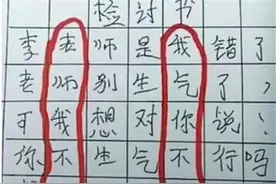 检讨书
李老师是我错了
老师别生气了，
可我想对你说：
你不生气不行吗